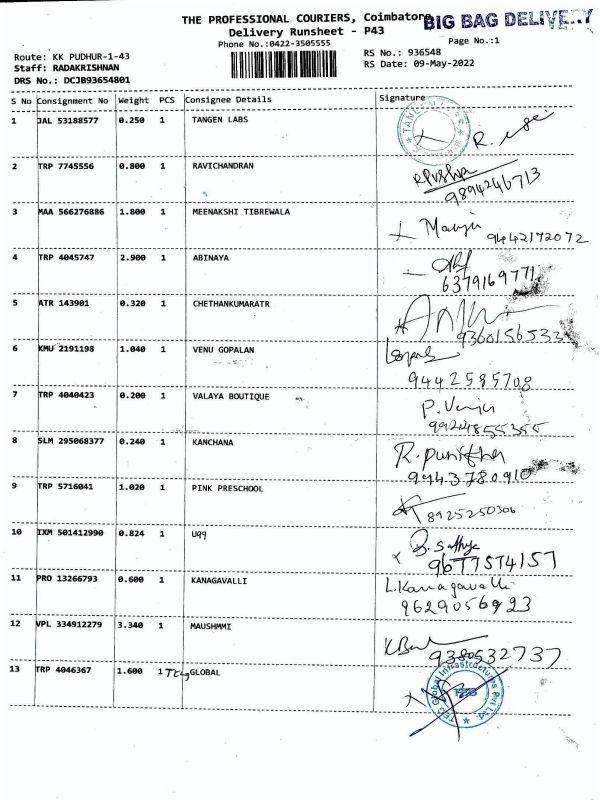 THE PROFESSIONAL COURIERS, Coimbatore
BIG BAG DELIVERY
Delivery Runsheet - P43
Phone No.:0422-3505555
Page No.:1
Route: KK PUDHUR-1-43
Staff: RADAKRISHNAN
DRS No.: DCJB93654801
RS No.: 936548
RS Date: 09-May-2022
S No Consignment No Weight PCS Consignee Details Signature
1 JAL 53188577 0.250 1 TANGEN LABS
2 TRP 7745556 0.800 1 RAVICHANDRAN
9894246713
3 MAA 566276886 1.800 1 MEENAKSHI TIBREWALA
9442172072
4 TRP 4045747 2.900 1 ABINAYA
6379169771
5 ATR 143901 0.320 1 CHETHANKUMARATR
9360156533
6 KMU 2191198 1.040 1 VENU GOPALAN
9442585708
7 TRP 4040423 0.200 1 VALAYA BOUTIQUE
8 SLM 295068377 0.240 1 KANCHANA
R. Punitha
9943780910
9 TRP 5716041 1.020 1 PINK PRESCHOOL
8925250306
10 IXM 501412990 0.824 1 U99
B. Sathya
9677574157
11 PRO 13266793 0.600 1 KANAGAVALLI
L. Kanagavalli
9629056923
12 VPL 334912279 3.340 1 MAUSHMMI
9380532737
13 TRP 4046367 1.600 1 GLOBAL
Global Infrastructures Pvt Ltd